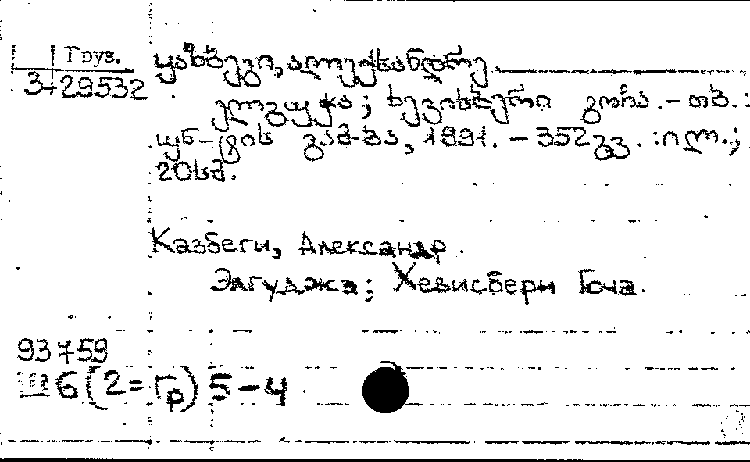 Груз.
3-29532
ყაზბეგი, ალექსანდრე.
ელგუჯა; ხევისბერი გოჩა. - თბ. :
უნ-ტის გამ-ბა, 1991. - 352 გვ. : ილ.;
20სმ.
Казбеги, Александр.
Элгуджа; Хевисбери Гоча.
93759
Ш6(2=Гр)5-4